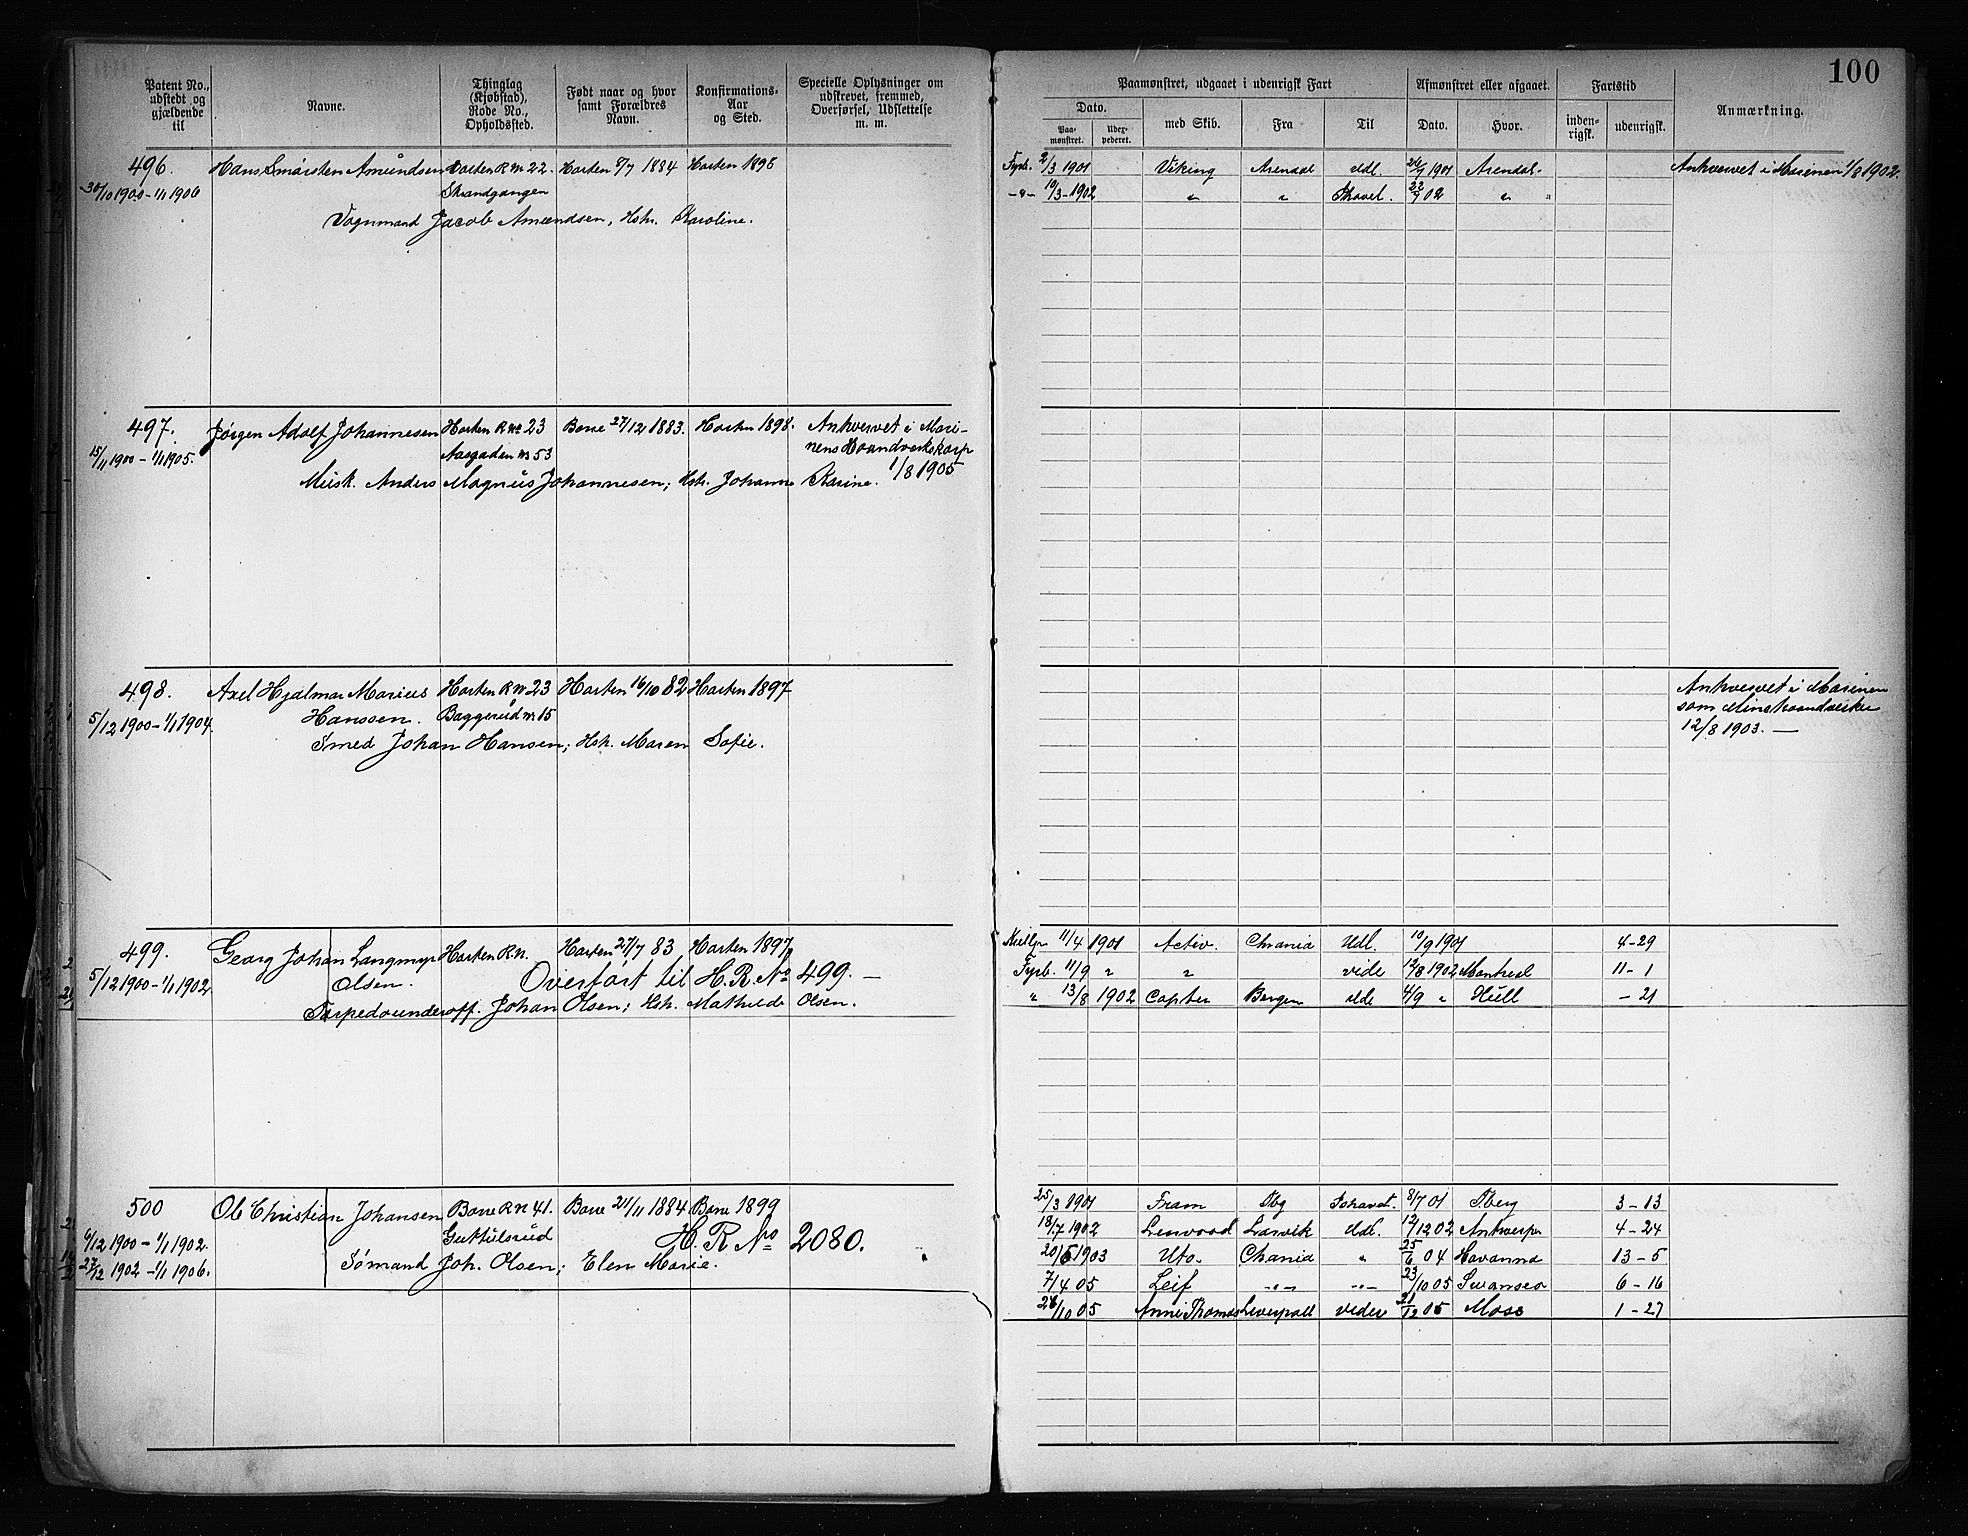 Patent No., udstedt og gjældende til
Navne.
Thinglag (Kjøbstad), Rode No., Opholdssted.
Født naar og hvor samt Forældres Navn.
Konfirmations-Aar og Sted.
Specielle Oplysninger om udskrevet, fremmed, Overførsel, Udslettelse m. m.
Paamønstret, udgaaet i udenrigsk Fart
Dato.
Paa-mønstret.
med Skib.
Fra
Til
Afmønstret eller afgaaet.
Dato.
Hvor.
Fartstid
inden-rigsk.
udenrigsk.
Anmærkning.
100
496. Hans Amundsen Horten R No 22. Horten 8/7 1884 Horten 1898
30/10 1900 - 1/1 1906 Strandgangen
Vognmand Jacob Amundsen, Hstr. Karoline.
Fyrb. 2/3 1901 Viking Arendal Udl. 1901 Arendal.
-"- 19/3-1902 " " 02 " "
Ankvervet i Marinen 1/8 1902.
497. Jørgen Adolf Johannesen Horten R No 23 Borre 27/12 1883. Horten 1898. Ankvervet i Mari-
15/11 1900 - 1/1 1905. Aasgaden No 53 nens Haandverkskorp
1/8 1905
Musk. Anders Magnus Johannesen; Hstr. Johanne Karine.
498. Axel Hjalmar Marius Horten R No 23 Horten 16/10 82 Horten 1897
Hanssen. Baggerud No 15
5/12 1900 - 1/1 1904.
Smed Johan Hansen; Hstr. Maren Sofie.
Ankvervet i Marinen
som Minehaandverker
12/8 1903. —
499. Georg Johan Langmyr Horten R No. Horten 27/7 83 Horten 1897
5/12 1900 - 1/1 1902 Olsen. Overført til H. R. No 499. —
Torpedounderoff. Johan Olsen; Hstr. Mathilde Olsen.
11/4 1901 Activ. Chrania Udl. 10/9 1901 4-29
Fyrb. 11/9 " " vide 12/8 1902 Montreal 11-1
" 13/8 1902 Capten Bergen 4/9 " Hull - 21
500 Ole Christian Johansen Borre R No 41. Borre 21/11 1884 Borre 1899
6/12 1900 - 1/1 1902. H. R. No 2080.
27/12 1902 - 1/1 1906. Sømand Joh. Olsen; Elen Marie.
25/3 1901 Fram Tbg 8/7 01 Tberg 3-13
18/7 1902 Lenwood Larvik Udl. 12/12 02 Antwerpn 4-24
20/5 1903 Uto. Chrania " 25/6 04 Havanna 13-5
7/4 05 Leif -"- -"- 23/10 05 Swansea 6-16
26/10 05 Anne Thomas Liverpoll videre 21/12 05 Moss 1-27